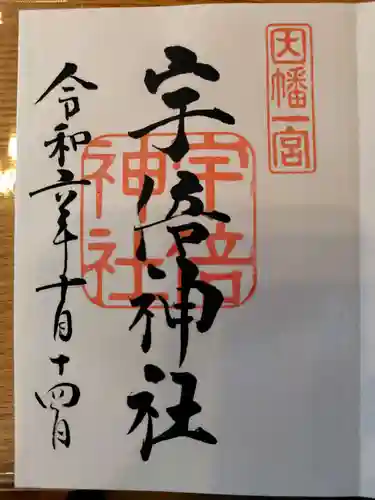 因幡一宮
宇倍神社
宇倍神社
令和六年十月十四日